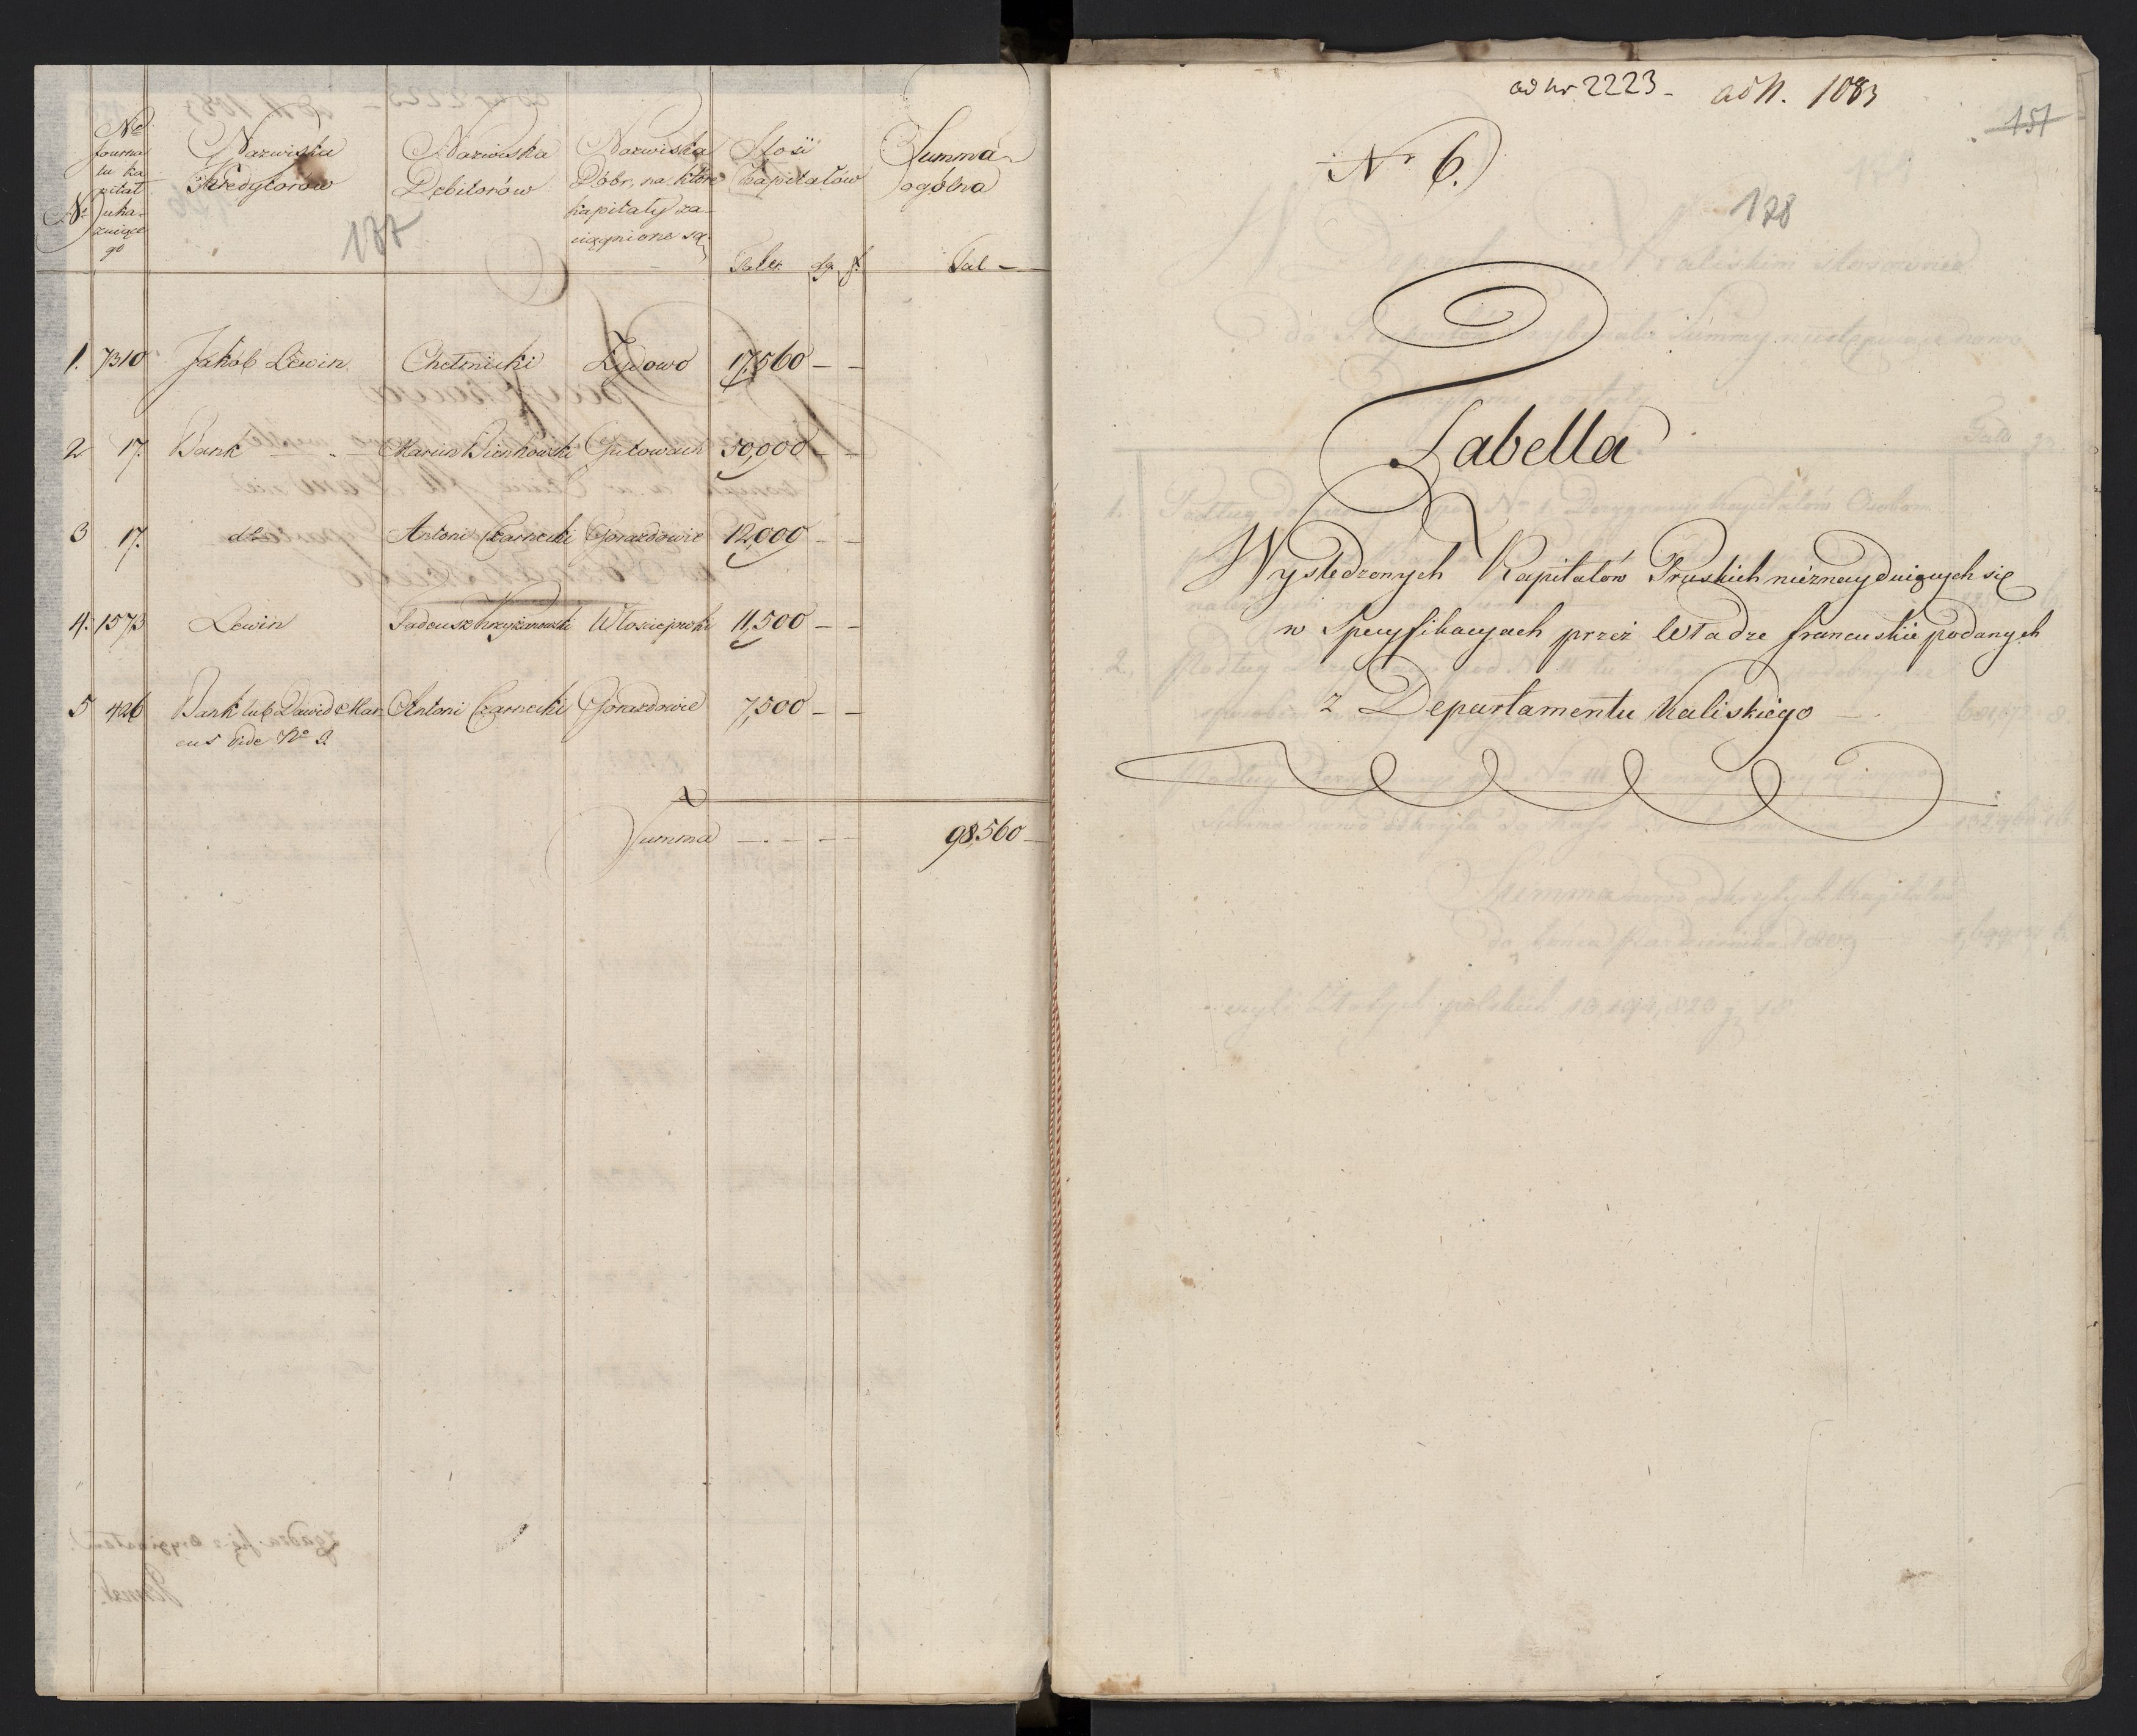 Nro
Journa
lu ka
pitał
uka-
zuiące
go
Nr
Nazwiska
Kredytorów
177
Nazwiska
Debitorów
Nazwiska
Dóbr, na które
kapitały za-
ciągnione są
Ilość
Kapitałów
Taler. dg. f.
Summa
ogólna
Tal —
1. 7310 Jakób Lewin Chełmicki Żydowo 17,560 — —
2 17. Bank — Marcin Bienkowski Gutowach 50,000 — —
3 17. dto Antoni Czarnecki Gorazdowie 12,000 — —
4. 1573 Lewin Tadeusz Krzyżanowski Włościejewki 11,500 — —
5 426 Bank lub Dawid Mar Antoni Czarnecki Gorazdowie 7,500 — —
cus Vide No 2.
Summa — — — — 98,560 —
ad nr 2223 - ad N. 1083
151
Nr 6.
178
Tabella
Wysledzonych Kapitałów Pruskich nieznayduiących się
w Specyfikacyach przez Władze francuskie podanych
z Departamentu Kaliskiego —